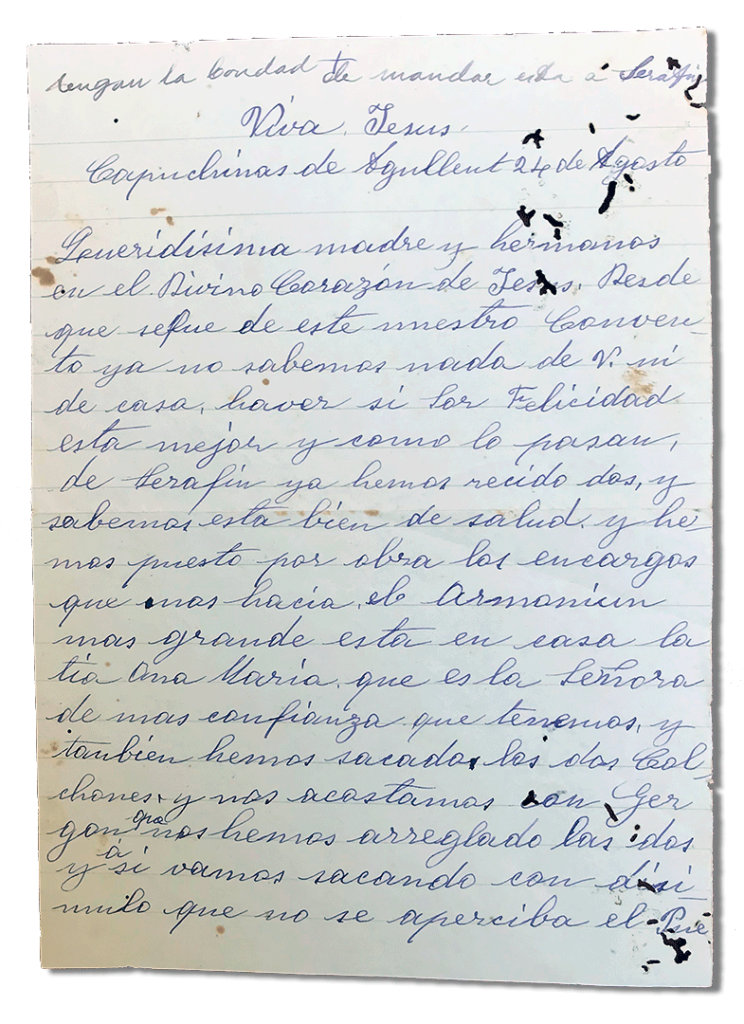 tengan la bondad de mandar esta á Serafin
Viva Jesus.
Capuchinas de Agullent 24 de Agosto
Queridisima madre y hermanos
en el Divino Corazón de Jesus. Desde
que se fue de este nuestro Conven-
to ya no sabemos nada de V. ni
de casa, haver si Sor Felicidad
esta mejor y como lo pasan,
de Serafin ya hemos recido dos, y
sabemos esta bien de salud. y he-
mos puesto por obra los encargos
que nos hacia, el Armoniun
mas grande esta en casa la
tia Ana Maria. que es la Señora
de mas confianza que tenemos, y
tanbien hemos sacado, los dos Col-
chones, y nos acostamos con Ger
gon que nos hemos arreglado las dos
y á si vamos sacando con disi-
mulo que no se aperciba el Pue